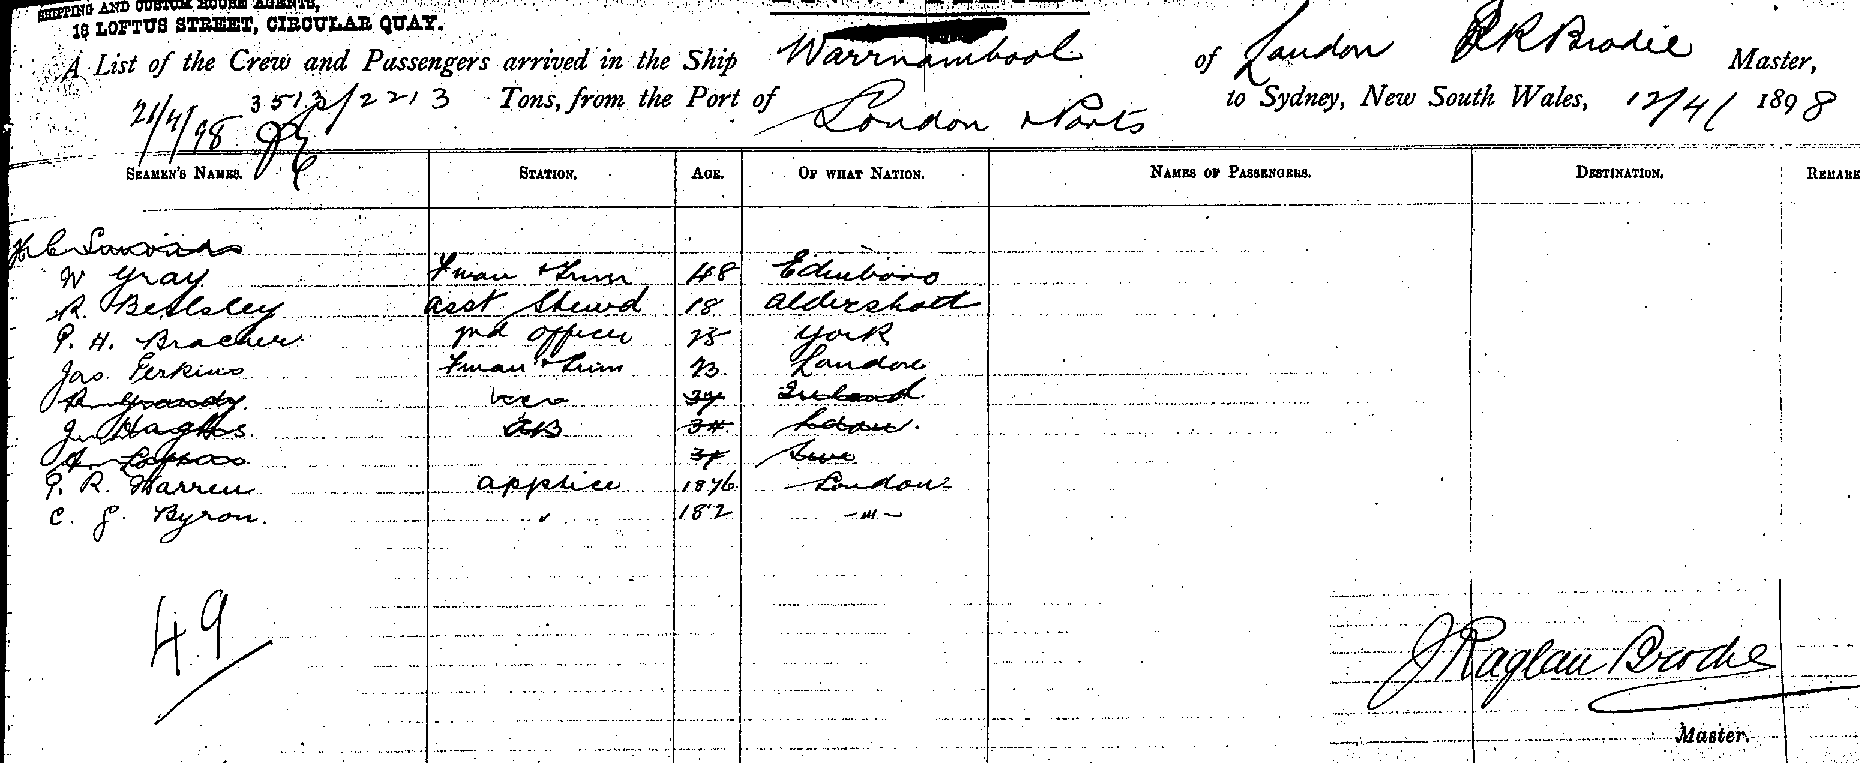 SHIPPING AND CUSTOM HOUSE AGENTS,
18 LOFTUS STREET, CIRCULAR QUAY.
A List of the Crew and Passengers arrived in the Ship Warrnambool of London R Brodie Master,
21/4/98 3513/2213 Tons, from the Port of London & Ports to Sydney, New South Wales, 12/4/ 1898
SEAMEN'S NAMES. STATION. AGE. OF WHAT NATION. NAMES OF PASSENGERS. DESTINATION. REMARK
W Gray Fman & Trim 48 Edinboro
R. Beilsley asst Stewd 18 aldershott
P. H. Bracher officer York
Jas. Perkins Fman & Trim 23 London
Ireland
J. AB 34
34
P. R. Warren apptice 1876 London
C. J. Byron. " 182 — " —
49
J Raglan Brodie
Master.